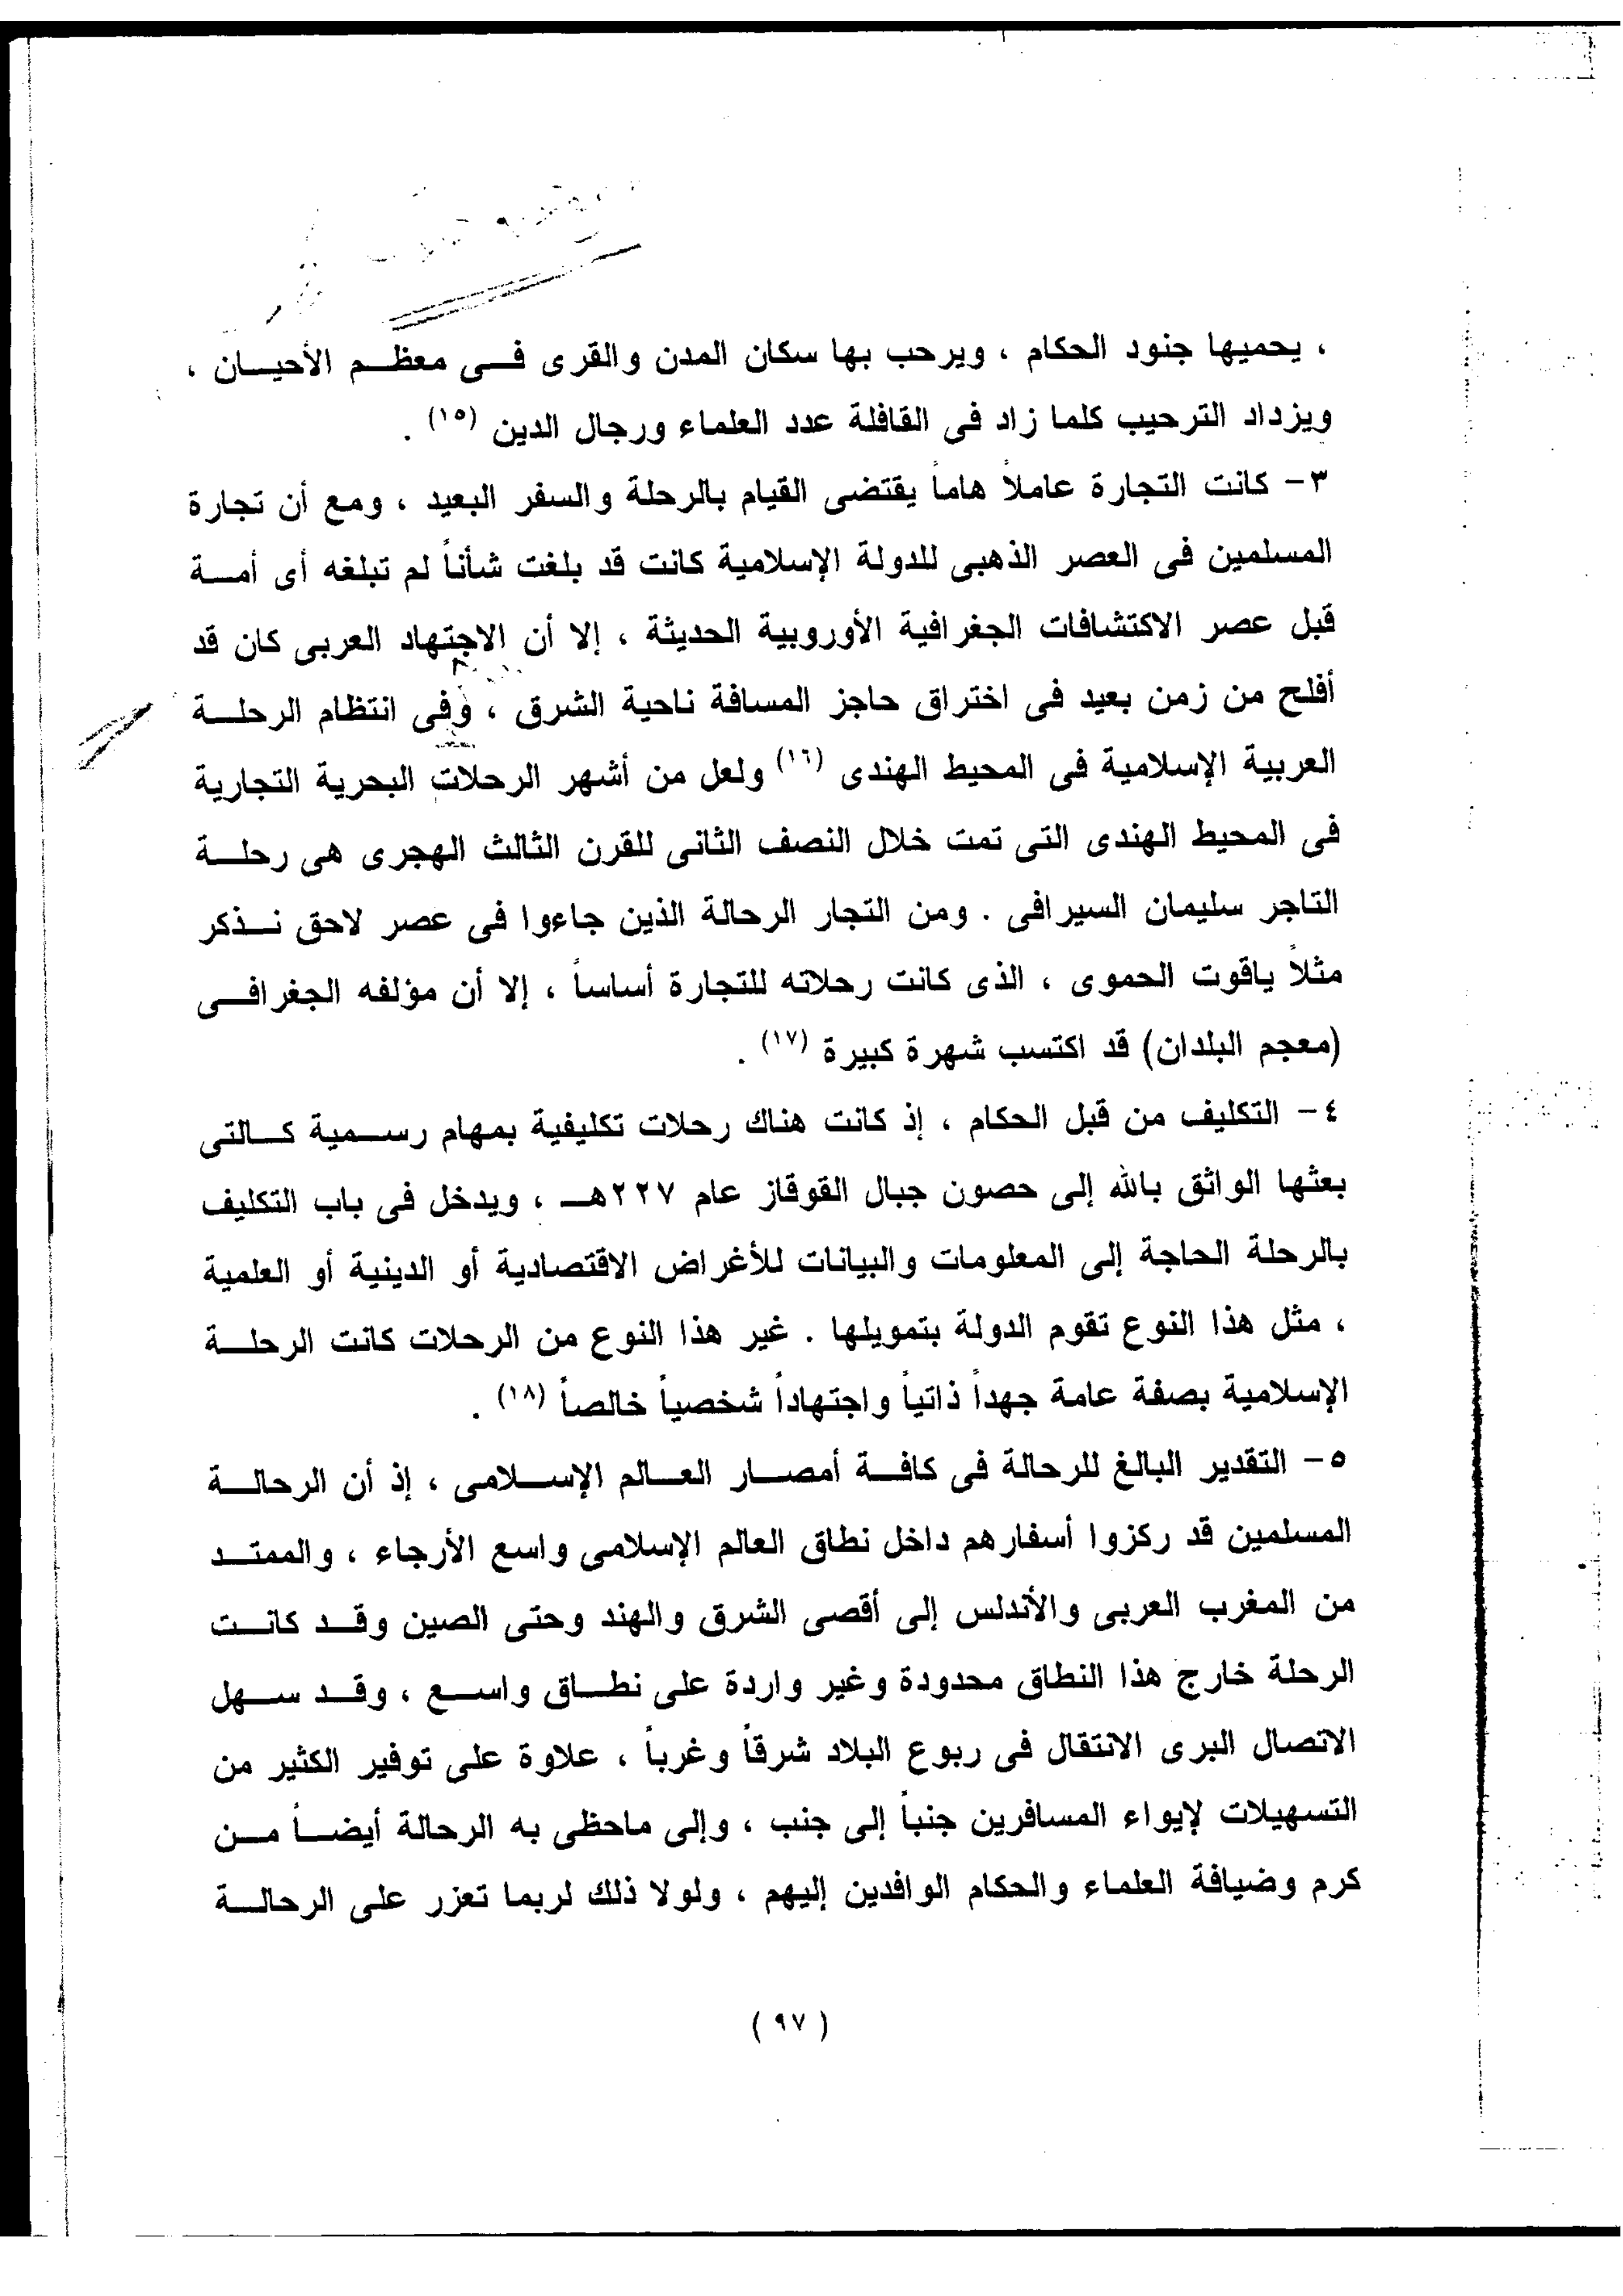 ، يحميها جنود الحكام ، ويرحب بها سكان المدن والقرى فى معظم الأحيان ،
ويزداد الترحيب كلما زاد فى القافلة عدد العلماء ورجال الدين (١٥) .
٣- كانت التجارة عاملاً هاماً يقتضى القيام بالرحلة والسفر البعيد ، ومع أن تجارة
المسلمين فى العصر الذهبى للدولة الإسلامية كانت قد بلغت شأناً لم تبلغه أى أمة
قبل عصر الاكتشافات الجغرافية الأوروبية الحديثة ، إلا أن الاجتهاد العربى كان قد
أفلح من زمن بعيد فى اختراق حاجز المسافة ناحية الشرق ، وفى انتظام الرحلة
العربية الإسلامية فى المحيط الهندى (١٦) ولعل من أشهر الرحلات البحرية التجارية
فى المحيط الهندى التى تمت خلال النصف الثانى للقرن الثالث الهجرى هى رحلة
التاجر سليمان السيرافى . ومن التجار الرحالة الذين جاءوا فى عصر لاحق نذكر
مثلاً ياقوت الحموى ، الذى كانت رحلاته للتجارة أساساً ، إلا أن مؤلفه الجغرافى
(معجم البلدان) قد اكتسب شهرة كبيرة (١٧) .
٤- التكليف من قبل الحكام ، إذ كانت هناك رحلات تكليفية بمهام رسمية كالتى
بعثها الواثق بالله إلى حصون جبال القوقاز عام ٢٢٧هـ ، ويدخل فى باب التكليف
بالرحلة الحاجة إلى المعلومات والبيانات للأغراض الاقتصادية أو الدينية أو العلمية
، مثل هذا النوع تقوم الدولة بتمويلها . غير هذا النوع من الرحلات كانت الرحلة
الإسلامية بصفة عامة جهداً ذاتياً واجتهاداً شخصياً خالصاً (١٨) .
٥- التقدير البالغ للرحالة فى كافة أمصار العالم الإسلامى ، إذ أن الرحالة
المسلمين قد ركزوا أسفارهم داخل نطاق العالم الإسلامى واسع الأرجاء ، والممتد
من المغرب العربى والأندلس إلى أقصى الشرق والهند وحتى الصين وقد كانت
الرحلة خارج هذا النطاق محدودة وغير واردة على نطاق واسع ، وقد سهل
الاتصال البرى الانتقال فى ربوع البلاد شرقاً وغرباً ، علاوة على توفير الكثير من
التسهيلات لإيواء المسافرين جنباً إلى جنب ، وإلى ماحظى به الرحالة أيضاً من
كرم وضيافة العلماء والحكام الوافدين إليهم ، ولولا ذلك لربما تعزر على الرحالة
( ٩٧ )